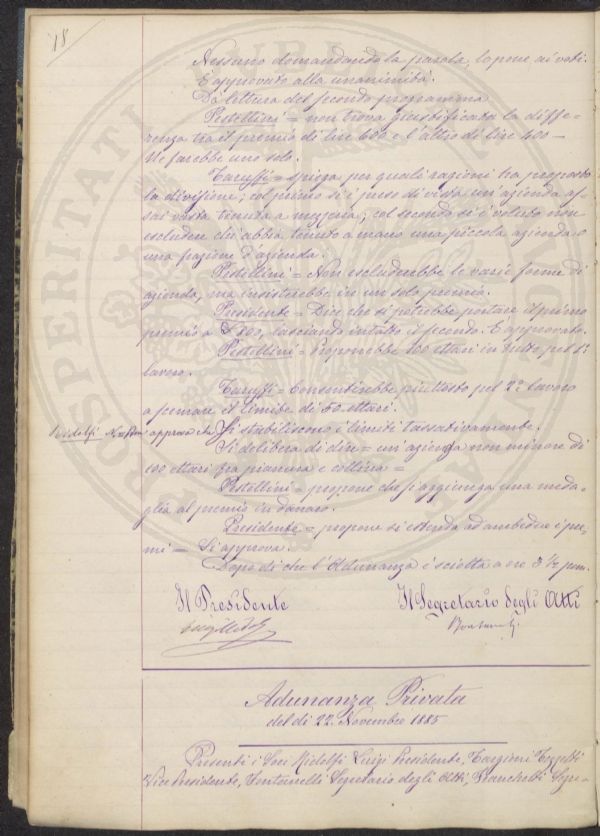 18
Nessuno domandando la parola, lo pone ai voti.
È approvato alla unanimità.
Dà lettura del secondo programma
Pestellini = non trova giustificata la diffe-
renza tra il premio di lire 600 e l'altro di lire 400 —
Ne farebbe uno solo.
Caruffi = spiega per quali ragioni ha proposto
la divisione; col primo si è preso di vista un'azienda as-
sai vasta tenuta a mezzeria; col secondo si è voluto non
escludere chi abbia tenuto a mano una piccola azienda o
una frazione d'azienda.
Pestellini = Non escluderebbe le varie forme di
azienda, ma insisterebbe in un solo premio.
Presidente = Dice che si potrebbe portare il primo
premio a £ 800, lasciando intatto il secondo. È approvato.
Pestellini = Proporrebbe 100 ettari in tutto pel 1º
lavoro.
Caruffi = Consentirebbe piuttosto pel 2º lavoro
a fermare il limite di 50 ettari.
Ridolfi approva che si stabiliscono i limiti tassativamente.
Si delibera di dire = un'azienda non minore di
100 ettari fra pianura e collina =
Pestellini = propone che si aggiunga una meda-
glia al premio in danaro.
Presidente = propone si estenda ad ambedue i pre-
mi — Si approva.
Dopo di che l'Adunanza è sciolta a ore 3 ½ pom.
Il Presidente
Il Segretario degli Atti
Adunanza Privata
del dì 22. Novembre 1885
Presenti i Soci Ridolfi Luigi Presidente, Targioni Tozzetti
Vice Presidente, Fontanelli Segretario degli Atti, Franchetti Segre-